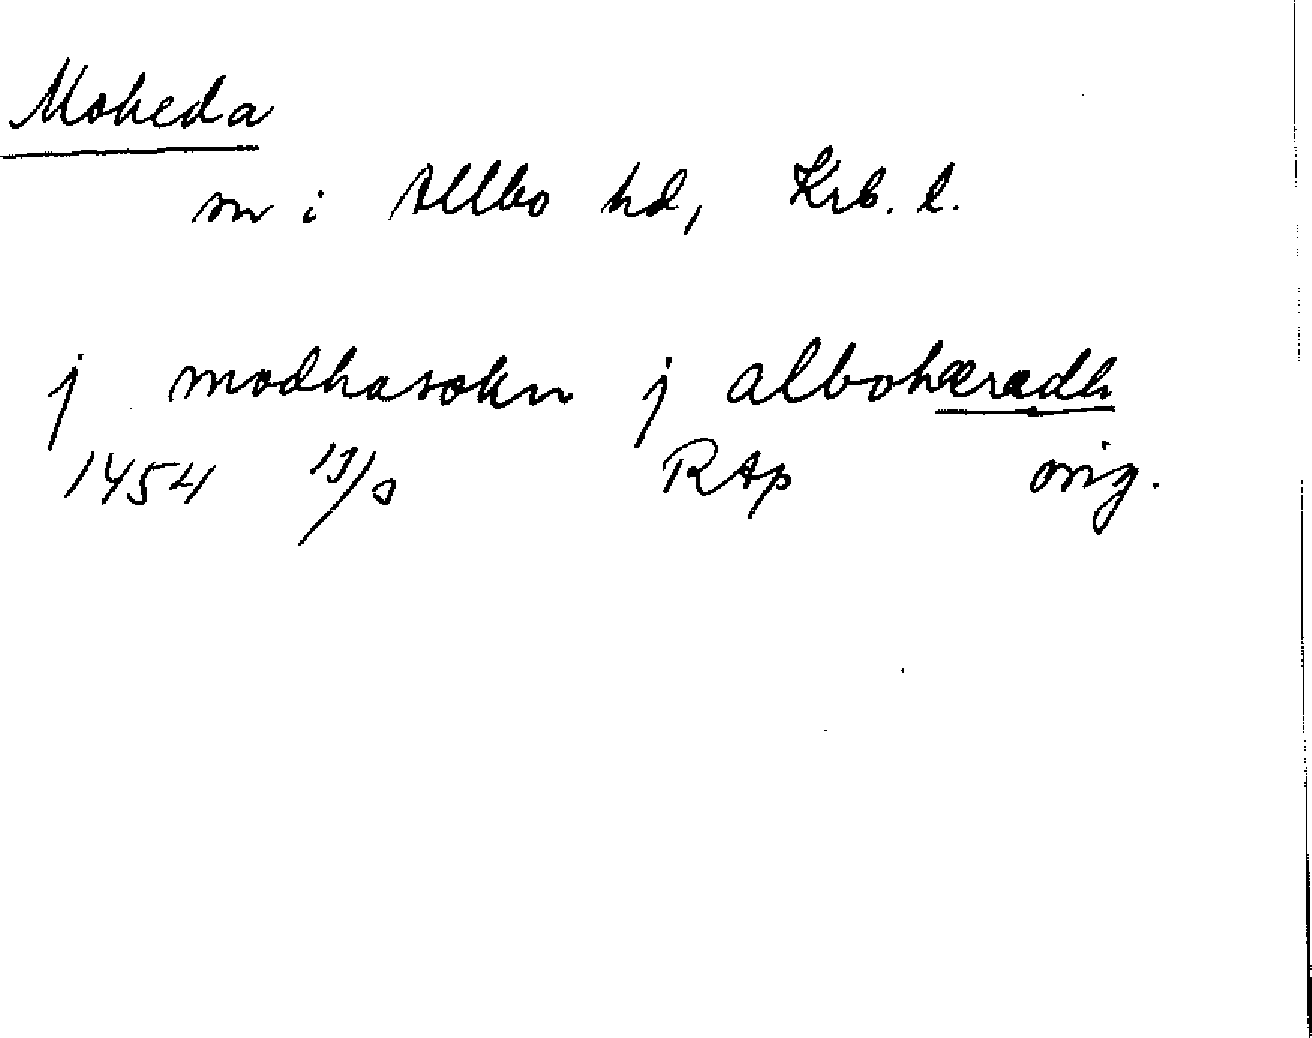 Moheda
sn i Allbo hd, Krb. l.
j modhasokn j albohæradh
1454 RAp orig.